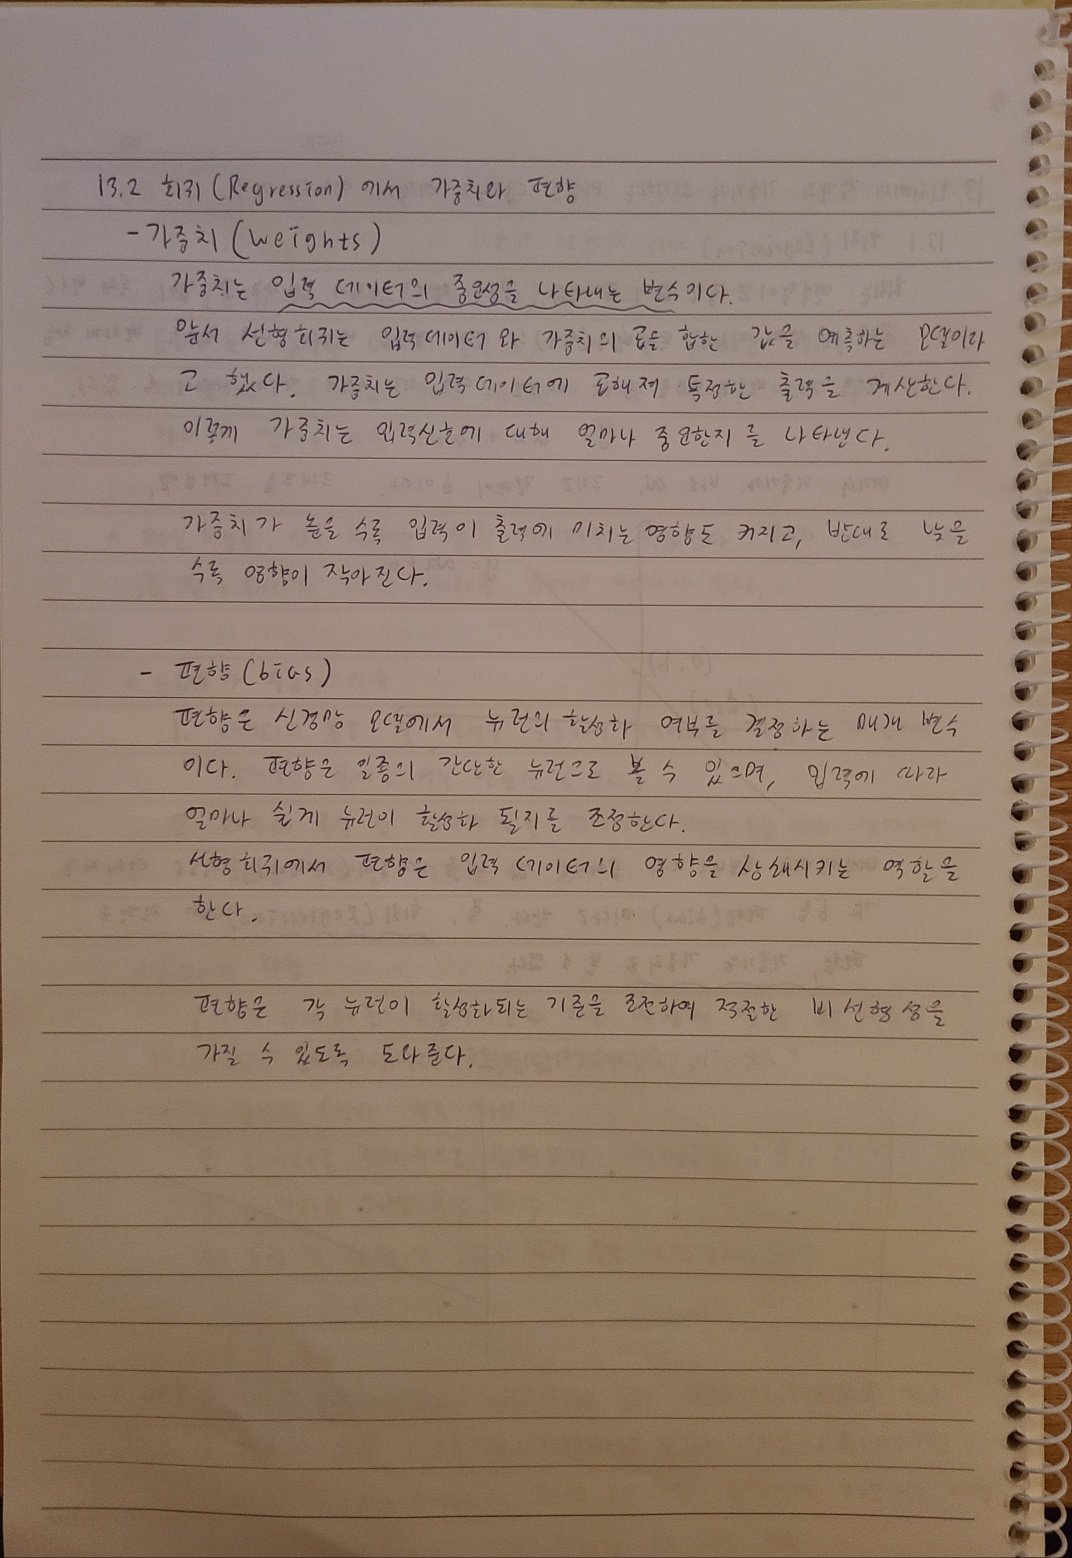 13.2 회귀(Regression)에서 가중치와 편향
- 가중치(weights)
가중치는 입력 데이터의 중요성을 나타내는 변수이다.
앞서 선형회귀는 입력데이터와 가중치의 곱을 합한 값을 예측하는 모델이라
고 했다. 가중치는 입력데이터에 곱해져 특정한 출력을 계산한다.
이렇게 가중치는 입력신호에 대해 얼마나 중요한지를 나타낸다.
가중치가 높을 수록 입력이 출력에 미치는 영향도 커지고, 반대로 낮을
수록 영향이 작아진다.
- 편향(bias)
편향은 신경망 모델에서 뉴런의 활성화 여부를 결정하는 매개 변수
이다. 편향은 일종의 간단한 뉴런으로 볼 수 있으며, 입력에 따라
얼마나 쉽게 뉴런이 활성화 될지를 조정한다.
선형회귀에서 편향은 입력 데이터의 영향을 상쇄시키는 역할을
한다.
편향은 각 뉴런이 활성화되는 기준을 조전하여 적절한 비선형성을
가질 수 있도록 도와준다.